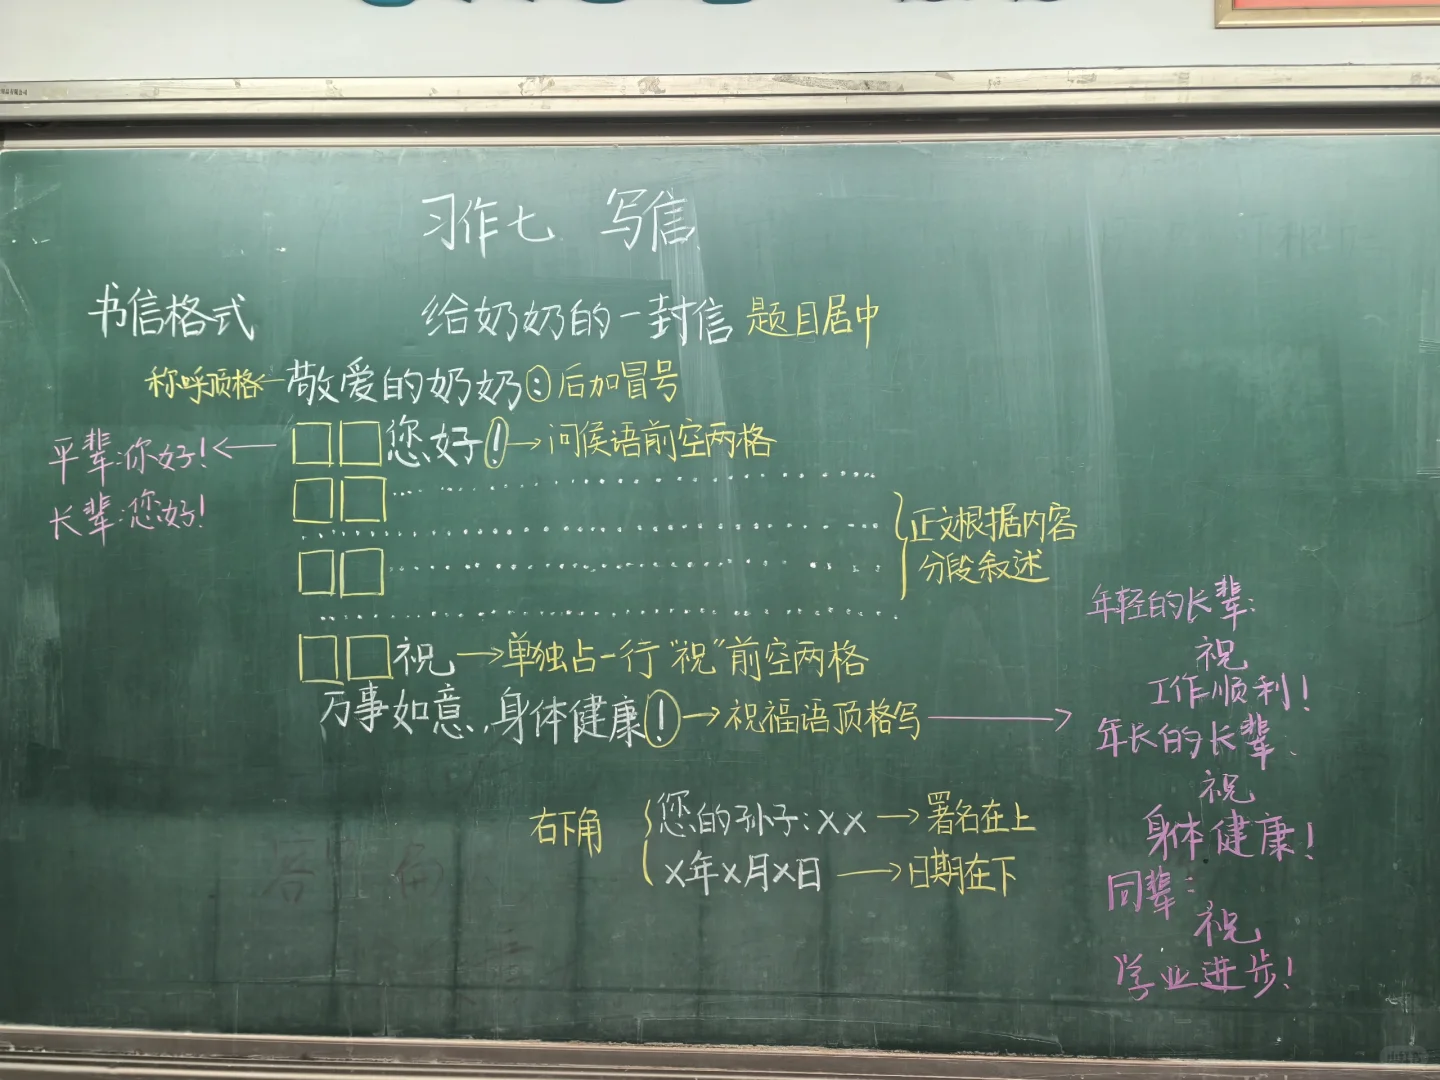 习作七 写信
书信格式
给奶奶的一封信 题目居中
称呼顶格← 敬爱的奶奶: 后加冒号
平辈:你好!← □□您好!→问侯语前空两格
长辈:您好!
□□
□□
正文根据内容
分段叙述
□□祝→单独占一行"祝"前空两格
万事如意,身体健康!→祝福语顶格写→
年轻的长辈:
祝
工作顺利!
年长的长辈:
祝
身体健康!
同辈:
祝
学业进步!
右下角
您的孙子:××→署名在上
×年×月×日→日期在下